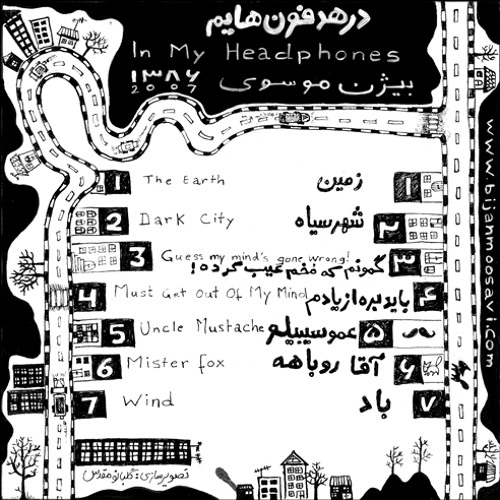 در هدفون هایم
In My Headphones
۱۳۸۶
2007
بیژن موسوی
www.bijanmoosavi.com
1 The Earth زمین ۱
2 Dark City شهر سیاه ۲
3 Guess my mind's gone wrong! گمونم که مُخم عیب کرده! ۳
4 Must Get Out Of My Mind باید بره از یادم ۴
5 Uncle Mustache عمو سیبیلو ۵
6 Mister fox آقا روباهه ۶
7 Wind باد ۷
تصویرسازی: